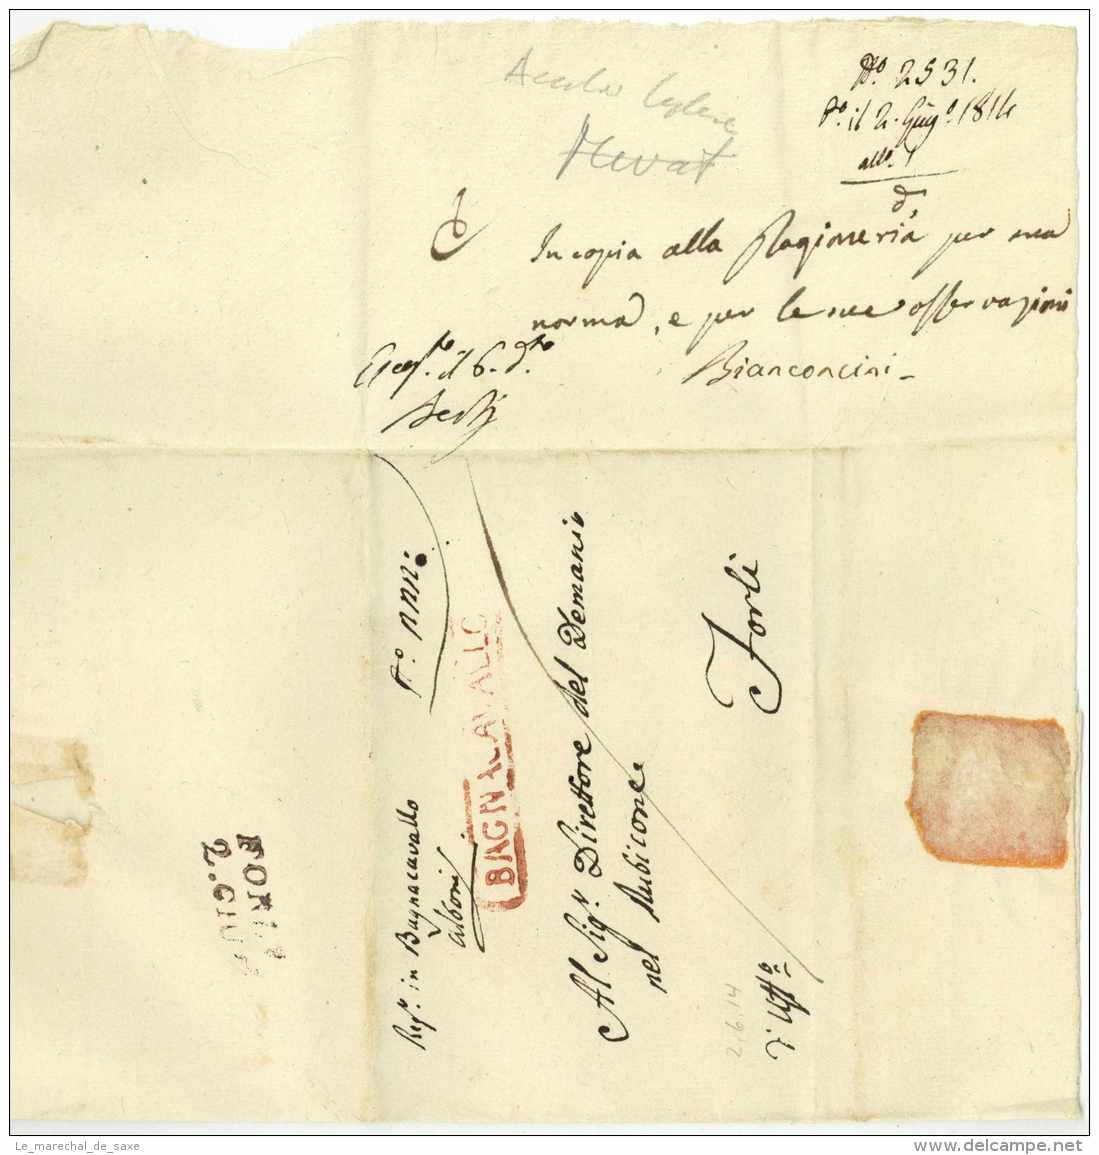 N.º 2531.
P.º il 2. Giug.º 1814
all. 1
In copia alla Ragioneria per sua
norma, e per le sue osservazioni
Bianconcini
il 6. d.to
Reg.º in Bagnacavallo
BAGNACAVALLO
Al Sig.r Direttore del Demanio
nel Rubicone
Forlì
d'Uff.º
2.6.14
FORLI
2.GIU
Le_marechal_de_saxe
delcampe.net